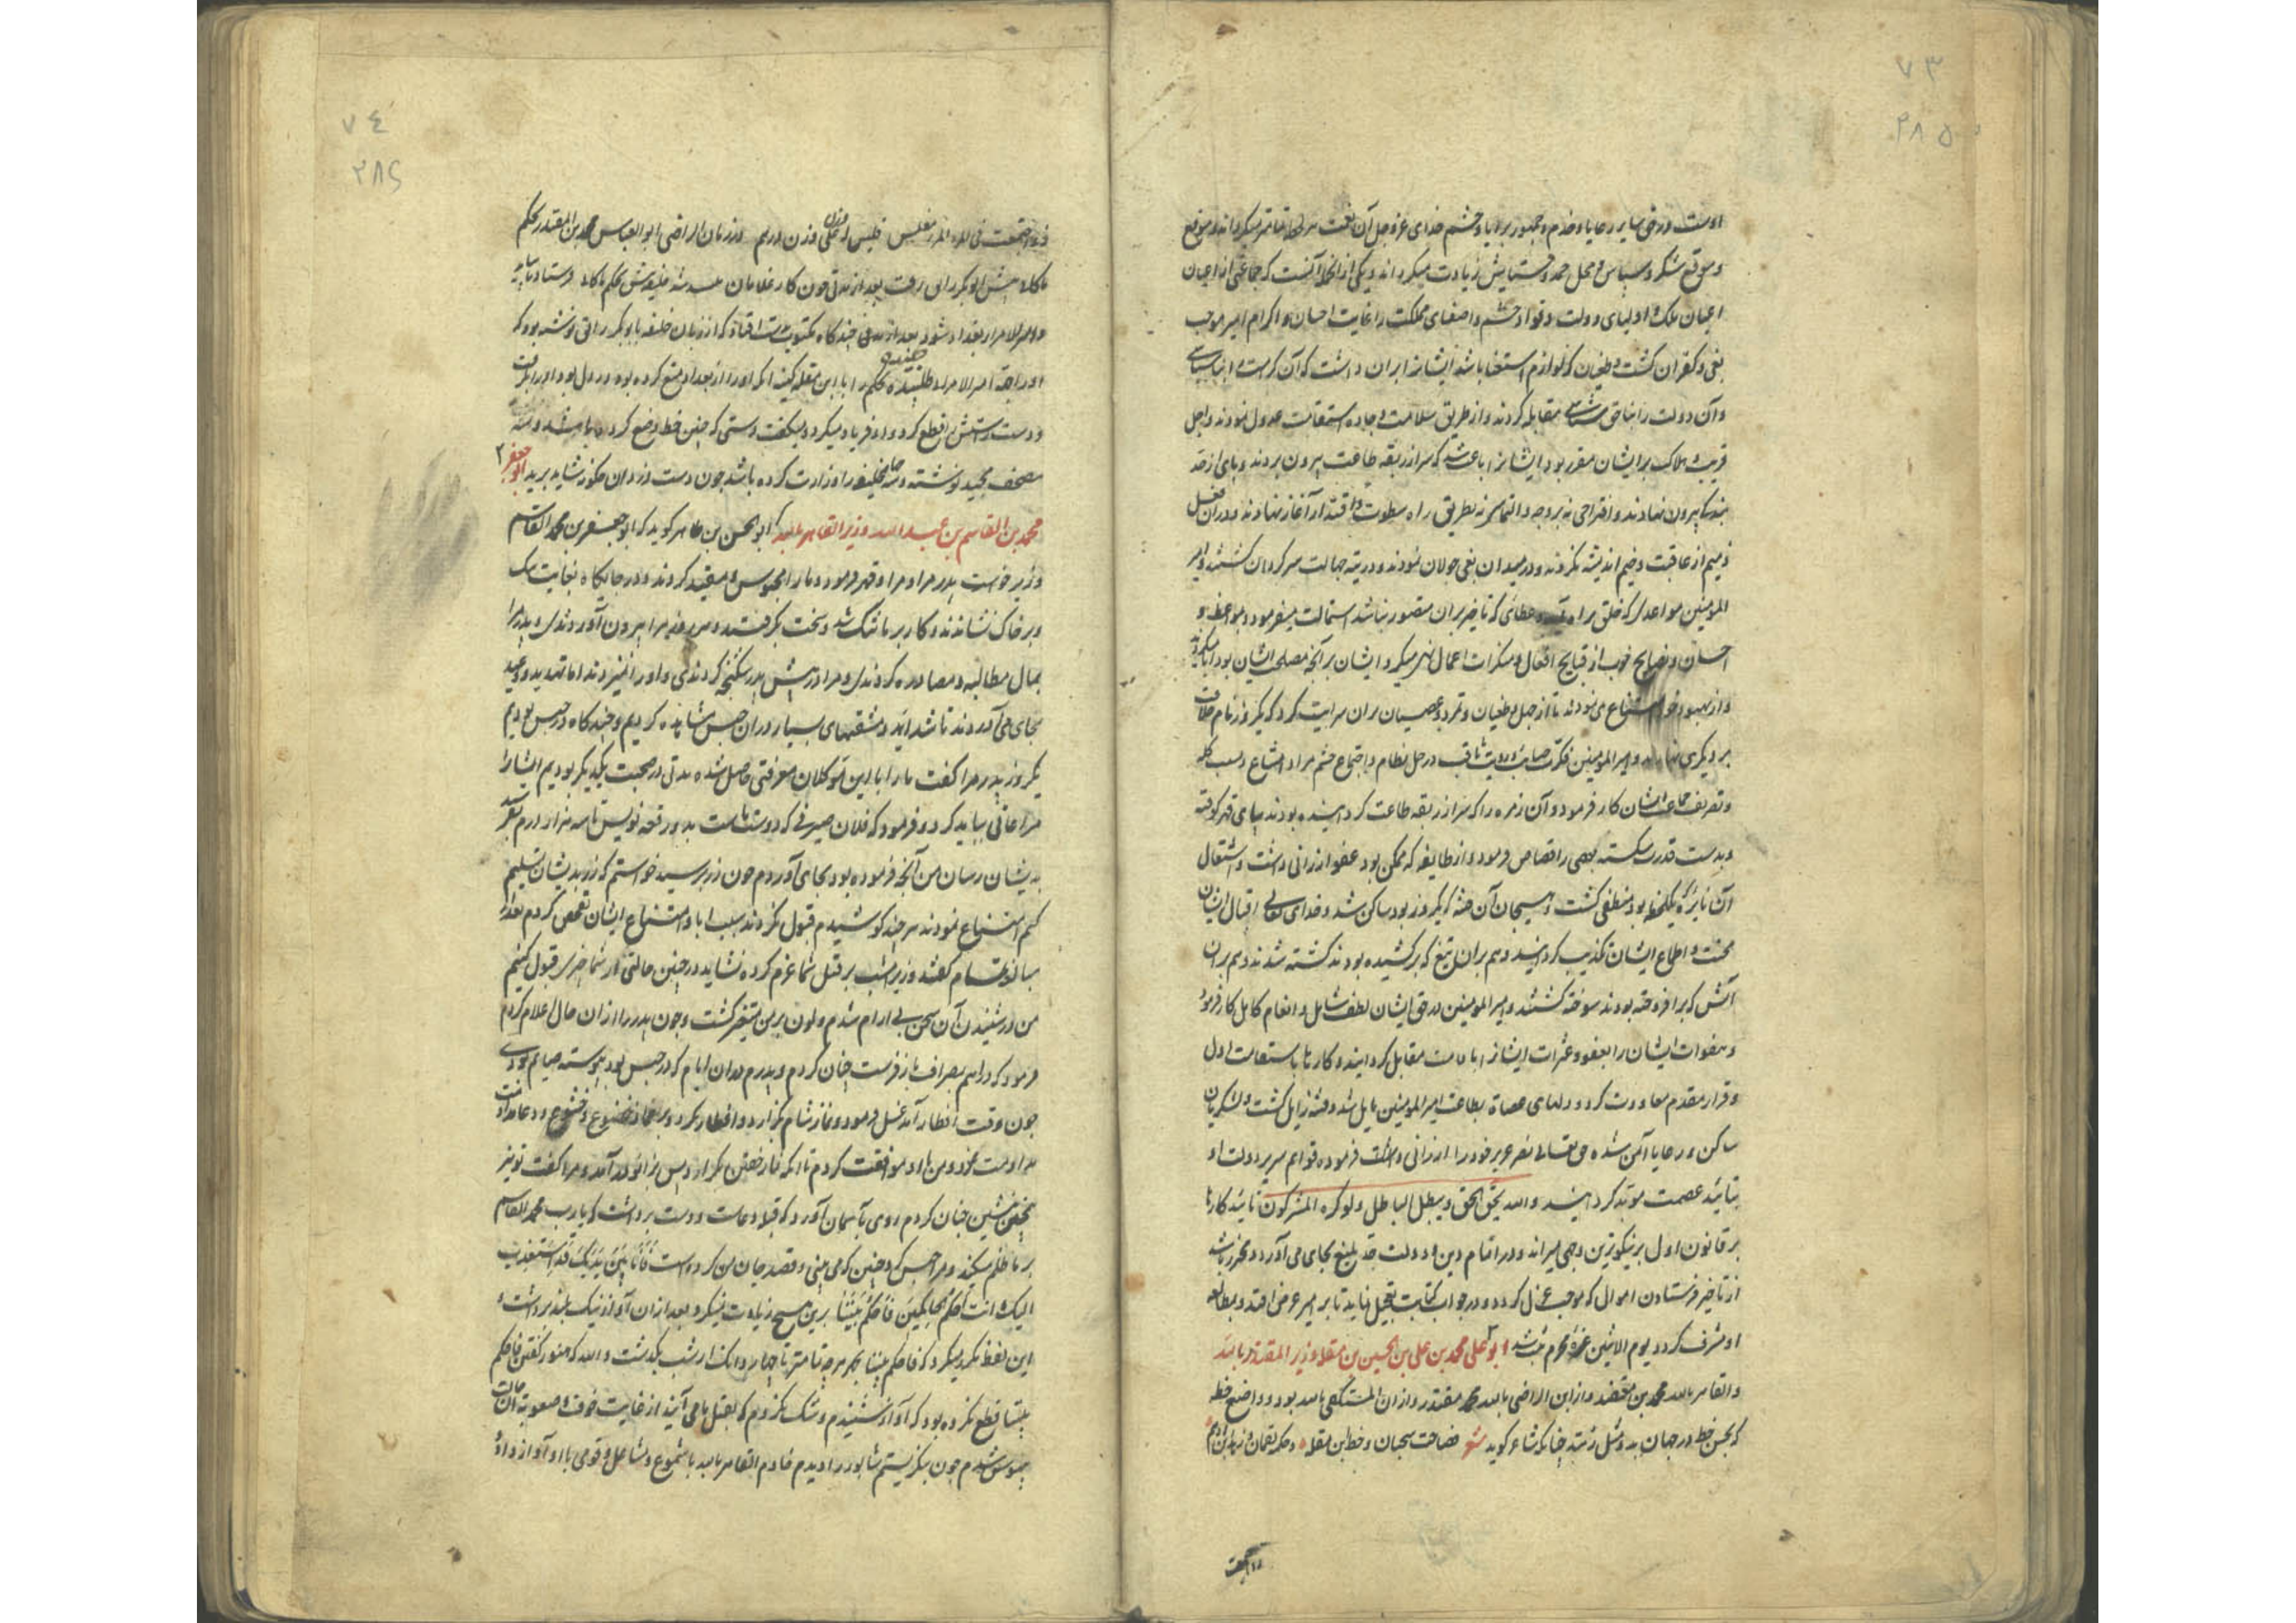 ۷۳
۲۸۵
اوست و در حق سایر رعایا و خدم و جمهور برایا و حشم خدای عز و جل آن نعمت
و موقع شکر و سپاس و محل حمد و ستایش زیادت میکرداند و یکی از انجمله آنست که جماعتی از اعیان
اعیان ملک و اولیای دولت و قواد حشم و اصفیای مملکت را غایت احسان و اکرام امیر موجب
بغی و کفران کشت و طغیان که لوازم استغنا باشد ایشانرا بران داشت که آن کرامت را بناسپاسی
و آن دولت را بناحق شناسی مقابله کردند و از طریق سلامت و جاده استقامت عدول نمودند و اجل
قریب و هلاک بر ایشان مقرر بود ایشانرا باعث شد که سر از ربقه طاعت بیرون بردند و پای از حد
بندکی بیرون نهادند و اقتراحی نه بر وجه و التماسی نه بطریق راه سطوت و اقتدار آغاز نهادند و در آن فعل
ذمیم از عاقبت وخیم اندیشه نکردند و در میدان بغی جولان نمودند و در تیه جهالت سرکردان کشتند و امیر
المومنین مواعدی که خلق برآمد و عطائی که تاخیر بران مقصور نباشد استمالت میفرمود و مواعظ و
احسان و نصایح خوب از قبایح افعال و منکرات اعمال نهی میکرد و ایشان بر آنچه مصلحت ایشان بود ابا میکردند
و از بهبود خود امتناع می نمودند تا از جهل و طغیان و تمرد و عصیان بران سرایت کرد که یکروز نام خلافت
بر دیکری نهادند و امیر المومنین فکرت صایب و رویت ثاقب در حل نظام و اجتماع حشم مراد و امتناع و سبب کله
و تفریق جماعت ایشان کار فرمود و آن زمره را که سر از ربقه طاعت کردانیده بودند بپای قهر کوفته
و بدست قدرت شکسته بعضی را قصاص فرمود و از طایفه که ممکن بود عفو ارزانی داشت و اشتعال
آن نایره یکلحظه بود منطفی کشت و هیجان آن فتنه که یکروز بود ساکن شد و خدای تعالی اقبال ایشان
محنت و اطماع ایشان تکذیب کردانید و هم بران تیغ که برکشیده بودند کشته شدند و هم بران
آتش که برافروخته بودند سوخته کشتند و امیر المومنین در حق ایشان لطف شامل و انعام کامل کار فرمود
و هفوات ایشان را بعفو و عثرات ایشانرا باقامت مقابل کردانید و کارها باستقامت اول
و قرار مقدم معاودت کرد و دلهای عصاة بطاعت امیر المومنین مایل شد و فتنه زایل کشت و لشکریان
ساکن و رعایا آمن شده حق تعالی نصر عزیز خود را ارزانی داشت فرموده قوایم سریر دولت او
بتائید عصمت موبد کردانید والله یحق الحق و یبطل الباطل ولو کره المشرکون تا نید کارها
بر قانون اول بر نیکوترین وجهی میراند و در اتمام دین و دولت جد بلیغ بجای می آورد و محترز باشد
از تاخیر فرستادن اموال که موجب عزل کردد و در جواب کتابت تعجیل نماید تا بر امیر عرض افتد و بمطالعه
او مشرف کردد یوم الاثنین غره محرم نبشته شد ابو علی محمد بن علی بن الحسین بن مقله وزیر المقتدر بالله
و القاهر بالله محمد بن معتضد و از ابن الراضی بالله محمد مقتدر و از ان المستکفی بالله بود و واضع خط
که بحسن خط در جهان بدو مثل زنند چنانکه شاعر کوید شعر فصاحت سحبان و خط ابن مقله و حکمة لقمان و زهد ابن ادهم
اذا اجتمعت
۷۴
۲۸۶
اذا اجتمعت فی المرء و المرء مفلس فلیس له قدر علی وزن درهم و در زمان الراضی ابو العباس محمد بن المقتدر بحکم
ماکان پیش ابوبکر رایق رفت بعد از مدتی چون کار غلامان
و امیر الامرا بغداد شود بعد از مدتی چندکاه مکتوبی بدست افتاد که از زبان خلیفه بابوبکر رایق نوشته بود که
او را بجهة امیر الامرا و طلبیده بحکم را با ابن مقله کینه آنکه او را از بغداد منع کرده بود در دل بود او را بکرفت
و دست راستش را قطع کرد و او فریاد میکرد و میکفت دستی که چنین خط وضع کرده باشد و سه
مصحف مجید نوشته و سه خلیفه را وزارت کرده باشد چون دست دزدان چکونه شاید برید ابو جعفر
محمد بن القاسم بن عبید الله وزیر القاهر بالله ابو الحسن بن طاهر کوید که ابو جعفر بن محمد القاسم
وزیر خواست پدر مرا و مرا و قهر فرمود و ما را محبوس و مقید کردند و در جایکاه بغایت تنک
و بر خاک نشاندند و کار بر ما تنک شد و سخت بکرفتند و هر روز مرا بیرون آوردندی و پدر را
بمال مطالبه و مصادره کردندی و مرا در پیش پدر شکنجه کردندی و او را نمیزدند اما تهدید و وعید
بجای می آوردند تا شداید و مشقتهای بسیار در ان حبس مشاهده کردیم و چندکاه در حبس بودیم
یکروز پدر مرا کفت ما را با این موکلان معرفتی حاصل شده مدتی در صحبت یکدیکر بودیم ایشانرا
مراعاتی بباید کرد و فرمود که فلان صیرفی که دوست ماست بدو رقعه نویس تا سه هزار درم بفرستد
بدیشان رسان من آنچه فرموده بود بجای آوردم چون زر برسید خواستم که زر بدیشان تسلیم
کنم امتناع نمودند هر چند کوشیدم قبول نکردند سبب ابا و امتناع ایشان تفحص کردم بعد از
مبالغه تمام کفتند وزیر امشب بر قتل شما عزم کرده نشاید در چنین حالتی از شما چیزی قبول کنیم
من در شنیدن آن سخن بی آرام شدم و لون بر من متغیر کشت و چون پدر را از ان حال اعلام کردم
فرمود که دراهم بصراف باز فرست چنان کردم و پدرم در ان ایام که در حبس بود پیوسته صایم بودی
چون وقت افطار آمد غسل فرمود و نماز شام بکزارد و افطار نکرد و بر نماز خضوع و خشوع و دعا مداومت
مداومت نمود و من با او موافقت کردم تا آنکه نماز خفتن بکزارد پس بزانو درآمد و مرا کفت تو نیز
همچنین بنشین چنان کردم روی بآسمان آورد که قبله دعاست و دست برداشت که یارب محمد القاسم
بر ما ظلم میکند و مرا حبس کرد چنین که می بینی و قصد جان من کرده است فانا بین یدیک قد استعذیت
الیک و انت احکم الحاکمین فاحکم بیننا برین هیچ زیادت نمیکرد بعد از ان آواز نیک بلند برداشت و
این لفظ مکرر میکرد که فاحکم بیننا بهر چه تمامتر تا چهار دانک از شب بکذشت والله که هنوز کفتن فاحکم
بیننا قطع نکرده بود که آواز شنیدم و شک نکردم که بقتل ما می آیند از غایت خوف و صعوبة آن حالت
بیهوش شدم چون بنکریستم شابور را دیدم خادم القاهر بالله با شموع و مشاعل و قومی با او آواز داد